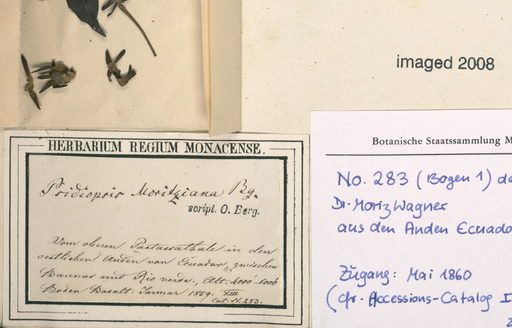 imaged 2008
HERBARIUM REGIUM MONACENSE.
Psidiopsis Moritziana Bg.
script. O. Berg.
Vom oberen Pastazathale in den
oestlichen Anden von Ecuador, zwischen
Bannas und Rio verde, Alt. 4000-6000
Boden Basalt. Januar 1859.
Cat. N. 283.
Botanische Staatssammlung M
No. 283 (Bogen 1) de
Dr. Moriz Wagner
aus den Anden Ecuado
Zugang: Mai 1860
(cfr. Accessions-Catalog I